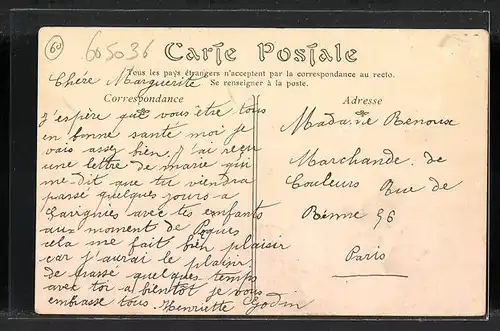 60
605036
Carte Postale
Tous les pays étrangers n'acceptent par la correspondance au recto.
Se renseigner à la poste.
Chére Marguerite
Correspondance
J'espère que vous être tous
en bonne sante moi je
vais assez bien. J'ai reçu
une lettre de marie qui
me dit que tu viendra
passé quelques jours a
Savignies avec tes enfants
aux moment de Paques
cela me fait bien plaisir
car j'aurai le plaisir
de passé quelques temps
avec toi a bientôt je vous
embrasse tous Henriette Godin
Adresse
Madame Renoux
Marchande de
Couleurs Rue de
Renne 96
Paris